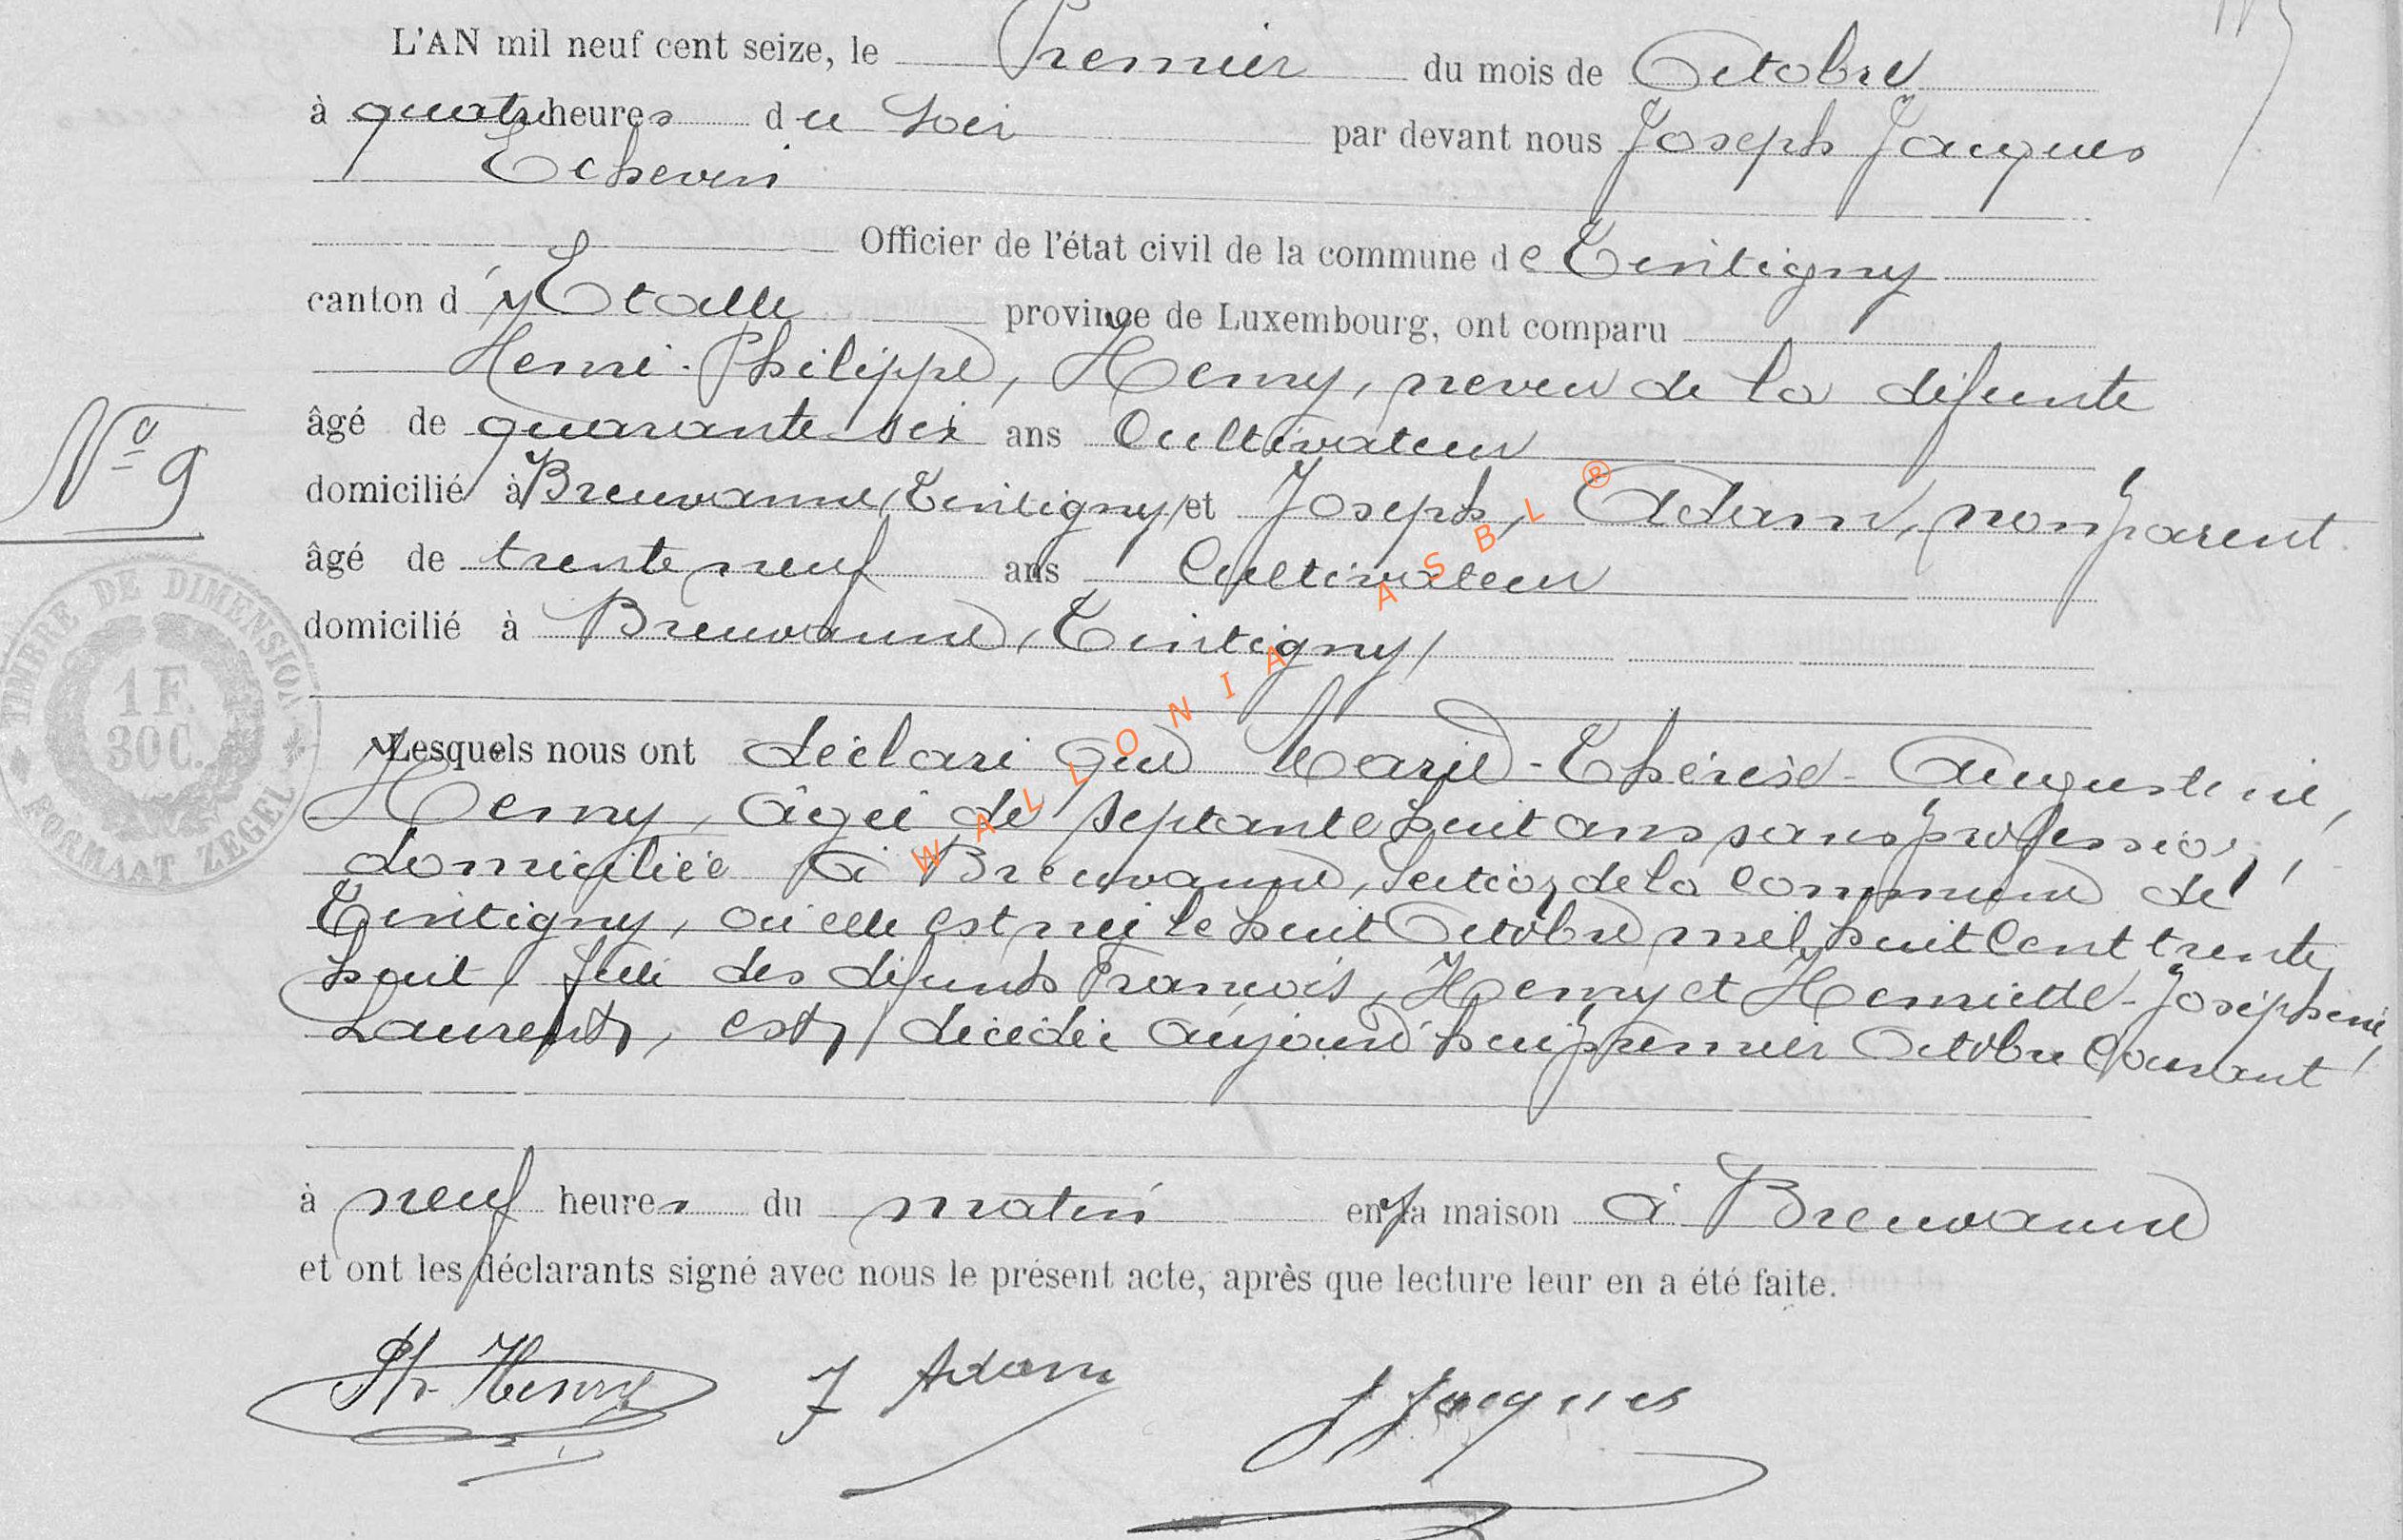 L'AN mil neuf cent seize, le Premier du mois de Octobre
à quatre heures du soir par devant nous Joseph Jacques
Echevin
Officier de l'état civil de la commune de Tintigny
canton d'Etalle province de Luxembourg, ont comparu
Henri-Philippe, Henry, neveu de la défunte
âgé de quarante six ans Cultivateur
domicilié à Breuvanne, Tintigny, et Joseph, Adam, non parent
N° 9
âgé de trente neuf ans Cultivateur
domicilié à Breuvanne, Tintigny,
TIMBRE DE DIMENSION
1 F.
30 C.
FORMAAT ZEGEL
Lesquels nous ont déclaré que Marie-Thérèse-Augustine,
Henry, âgée de septante huit ans, sans profession,
domiciliée à Breuvanne, Section de la Commune de
Tintigny, où elle est née le huit Octobre mil huit Cent trente
huit, fille des défunts François, Henry et Henriette-Joséphine,
Laurent, est décédée aujourd'hui premier Octobre Courant
à neuf heures du matin en sa maison à Breuvanne
et ont les déclarants signé avec nous le présent acte, après que lecture leur en a été faite.
Ph. Henry J Adam J Jacques
WALLONIA ASBL ®